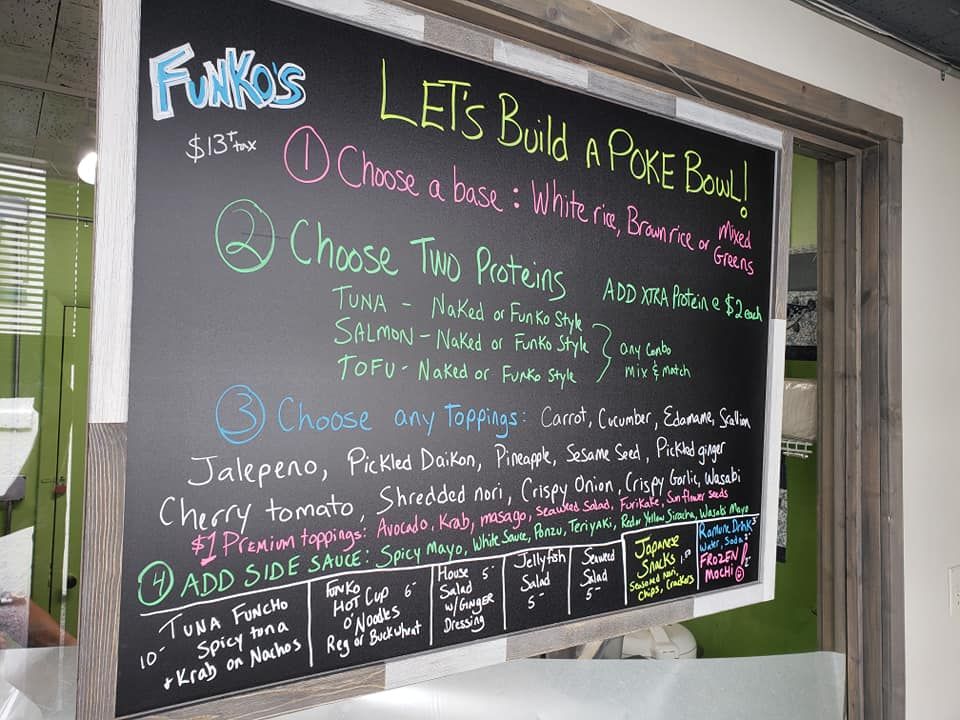 FUNKO'S
LET'S Build A POKE BOWL!
$13 + tax
1 Choose a base: White rice, Brown rice or Mixed Greens
2 Choose Two Proteins
ADD XTRA Protein @ $2 each
TUNA - Naked or Funko Style
SALMON - Naked or Funko Style
TOFU - Naked or Funko Style
any combo
mix & match
3 Choose any Toppings: Carrot, Cucumber, Edamame, Scallion
Jalepeno, Pickled Daikon, Pineapple, Sesame Seed, Pickled ginger
Cherry tomato, Shredded nori, Crispy Onion, Crispy Garlic, Wasabi
$1 Premium toppings: Avocado, Krab, masago, seaweed Salad, Furikake, Sunflower seeds
4 ADD SIDE SAUCE: Spicy Mayo, White Sauce, Ponzu, Teriyaki, Red or Yellow Siracha, Wasabi Mayo
TUNA FUNCHO
Spicy tuna
10- + Krab on Nachos
Funko 6-
HOT CUP
O' Noodles
Reg or Buckwheat
House 5-
Salad
w/GINGER
Dressing
Jellyfish
Salad
5-
Seaweed
Salad
5-
Japanese
Snacks 1.50
Seasoned Nori,
Chips, Crackers
Ramune Drink 3-
Water, Soda
FROZEN
MOCHI